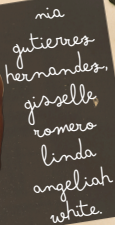 nia
gutierrez
hernandez,
gisselle
romero
linda
angeliah
white.